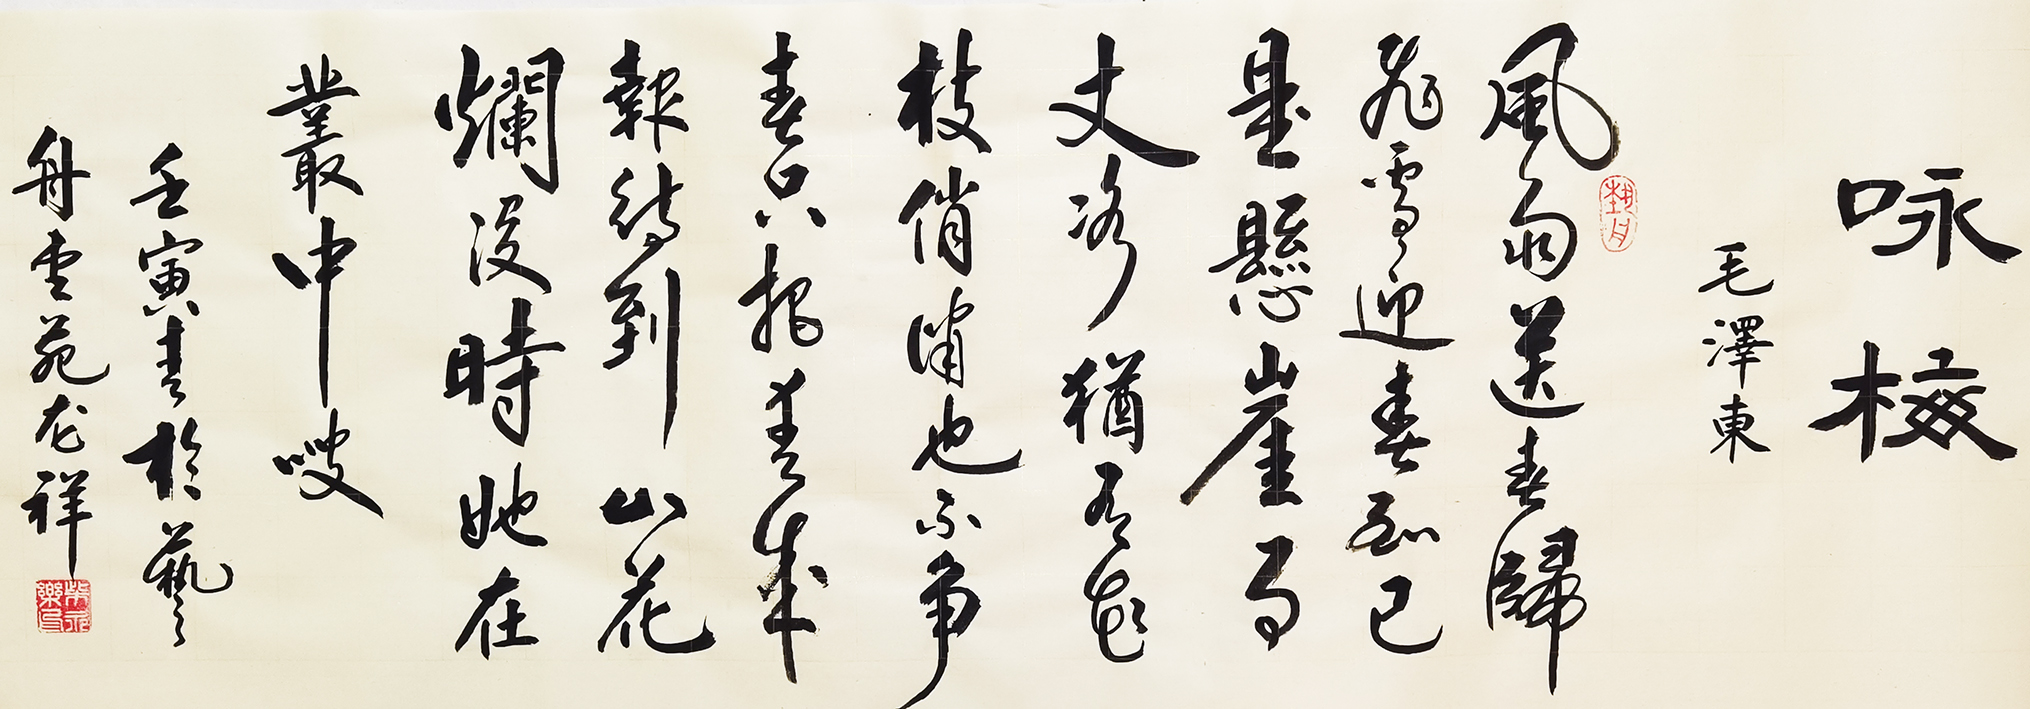 咏梅
毛澤東
風雨送春歸
飛雪迎春到已
是懸崖百
丈冰猶有花
枝俏俏也不争
春只把春来
報待到山花
爛漫時她在
叢中咲
壬寅書於藝
舟雲苑龙祥